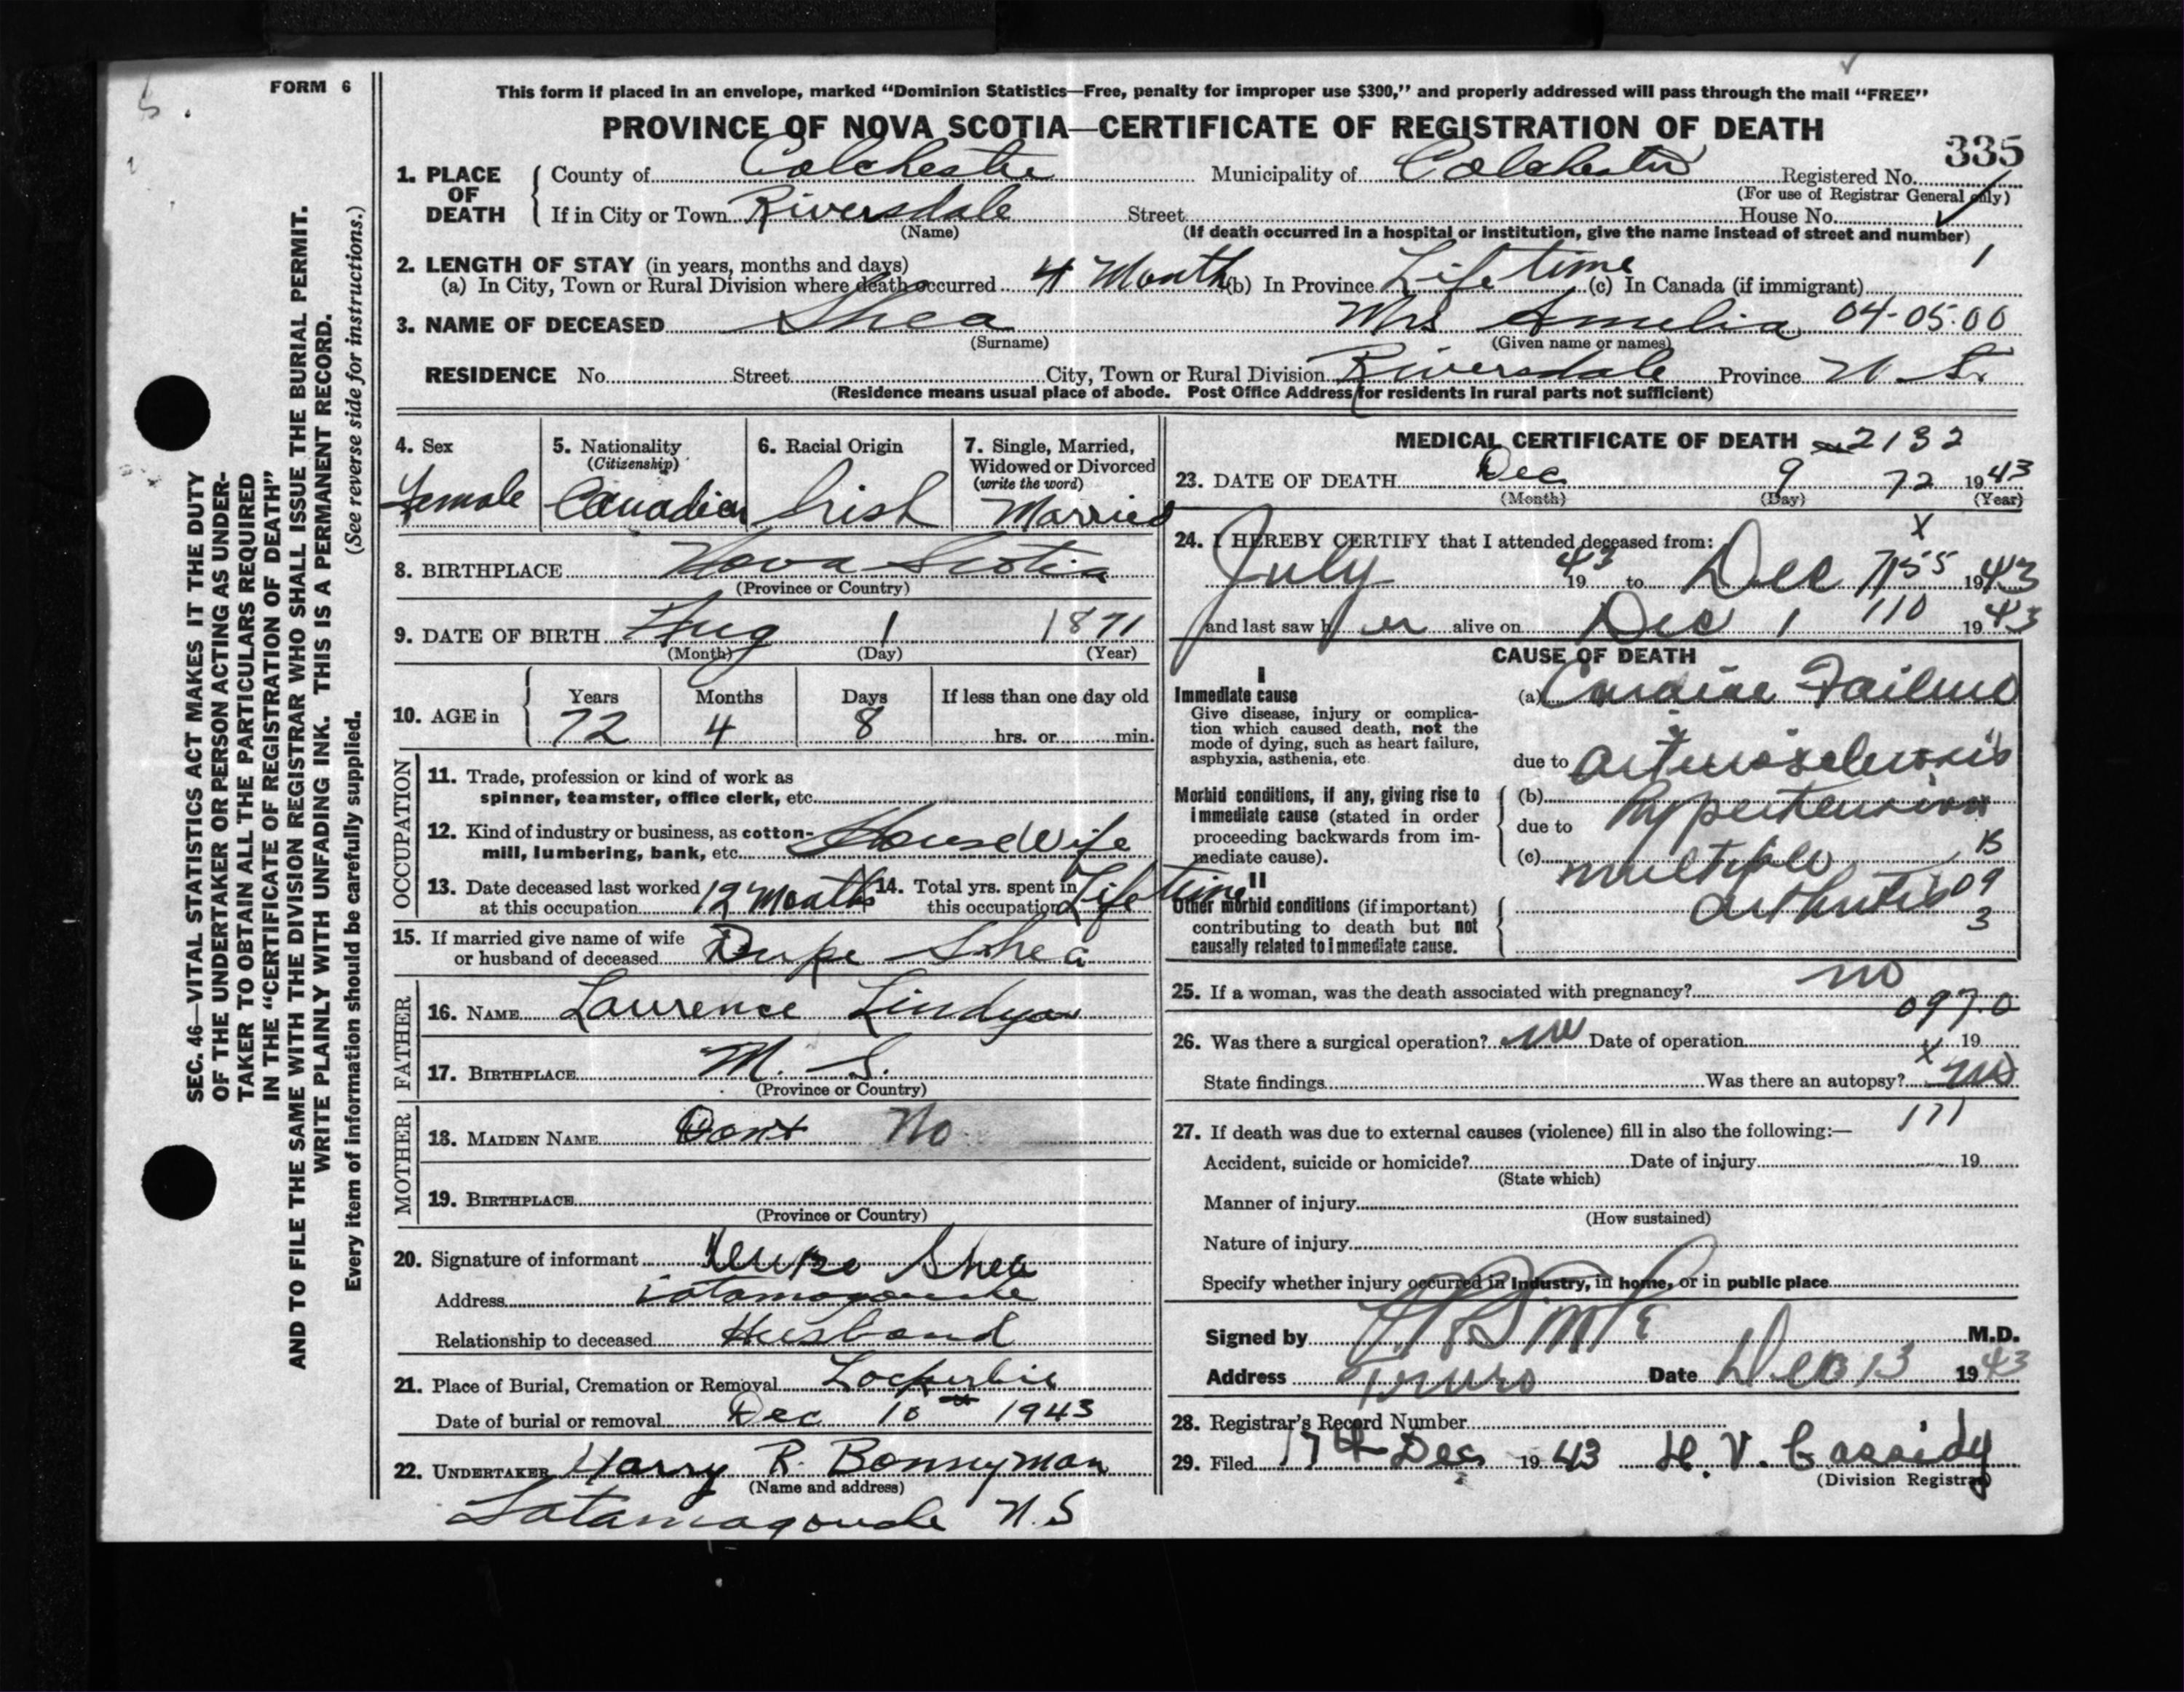 FORM 6
This form if placed in an envelope, marked “Dominion Statistics—Free, penalty for improper use $300,” and properly addressed will pass through the mail “FREE”
PROVINCE OF NOVA SCOTIA—CERTIFICATE OF REGISTRATION OF DEATH
335
1. PLACE OF DEATH
County of Colchester Municipality of Colchester Registered No.
(For use of Registrar General only)
If in City or Town Riversdale Street House No.
(Name)
(If death occurred in a hospital or institution, give the name instead of street and number)
2. LENGTH OF STAY (in years, months and days)
1
(a) In City, Town or Rural Division where death occurred 4 Month (b) In Province Life time (c) In Canada (if immigrant)
3. NAME OF DECEASED Shea Mrs Amelia 04-05.00
(Surname) (Given name or names)
RESIDENCE No. Street City, Town or Rural Division Riversdale Province N. S.
(Residence means usual place of abode. Post Office Address for residents in rural parts not sufficient)
4. Sex
Female
5. Nationality
(Citizenship)
Canadian
6. Racial Origin
Irish
7. Single, Married,
Widowed or Divorced
(write the word)
Married
8. BIRTHPLACE Nova Scotia
(Province or Country)
9. DATE OF BIRTH Aug 1 1871
(Month) (Day) (Year)
10. AGE in
Years Months Days If less than one day old
72 4 8 hrs. or min.
OCCUPATION
11. Trade, profession or kind of work as
spinner, teamster, office clerk, etc.
12. Kind of industry or business, as cotton-
mill, lumbering, bank, etc. HouseWife
13. Date deceased last worked
at this occupation 12 Months
14. Total yrs. spent in
this occupation Life time
15. If married give name of wife
or husband of deceased Dupe Shea
FATHER
16. NAME Laurence
17. BIRTHPLACE M. S.
(Province or Country)
MOTHER
18. MAIDEN NAME Dont No
19. BIRTHPLACE
(Province or Country)
20. Signature of informant Shea
Address Tatamagouche
Relationship to deceased Husband
21. Place of Burial, Cremation or Removal Lockerbie
Date of burial or removal Dec 10th 1943
22. UNDERTAKER Harry R. Bonnyman
(Name and address)
Tatamagouche N.S
MEDICAL CERTIFICATE OF DEATH 2132
23. DATE OF DEATH Dec 9 72 1943
(Month) (Day) (Year)
24. I HEREBY CERTIFY that I attended deceased from: X
July 1943 to Dec 7 155 1943
and last saw her alive on Dec 1 110 1943
CAUSE OF DEATH
I
Immediate cause
Give disease, injury or complica-
tion which caused death, not the
mode of dying, such as heart failure,
asphyxia, asthenia, etc.
(a) Cardiac Failure
due to arteriosclerosis
Morbid conditions, if any, giving rise to
immediate cause (stated in order
proceeding backwards from im-
mediate cause).
(b) hypertension
due to
(c) multiple B
II
Other morbid conditions (if important)
contributing to death but not
causally related to immediate cause.
arthritis 09
3
25. If a woman, was the death associated with pregnancy? no
097.0
26. Was there a surgical operation? no Date of operation 19
X
State findings Was there an autopsy? no
171
27. If death was due to external causes (violence) fill in also the following:—
Accident, suicide or homicide? Date of injury 19
(State which)
Manner of injury
(How sustained)
Nature of injury
Specify whether injury occurred in Industry, in home, or in public place
Signed by M.D.
Address Truro Date Dec 13 1943
28. Registrar's Record Number
29. Filed 17th Dec 1943 H. V. Cassidy
(Division Registrar)
SEC. 46—VITAL STATISTICS ACT MAKES IT THE DUTY
OF THE UNDERTAKER OR PERSON ACTING AS UNDER-
TAKER TO OBTAIN ALL THE PARTICULARS REQUIRED
IN THE “CERTIFICATE OF REGISTRATION OF DEATH”
AND TO FILE THE SAME WITH THE DIVISION REGISTRAR WHO SHALL ISSUE THE BURIAL PERMIT.
WRITE PLAINLY WITH UNFADING INK. THIS IS A PERMANENT RECORD.
Every item of information should be carefully supplied. (See reverse side for instructions.)